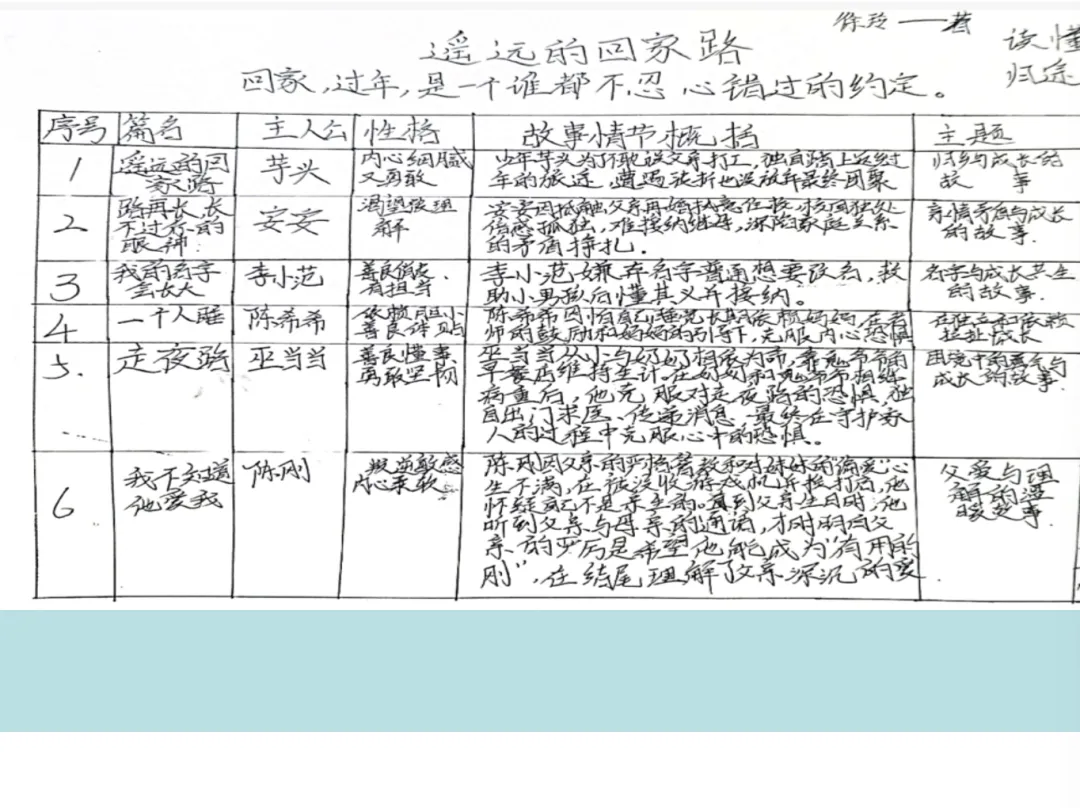 徐玲——著
读懂
归途
遥远的回家路
回家,过年,是一个谁都不忍心错过的约定。
序号 篇名 主人公 性格 故事情节概括 主题
1
遥远的回
家路
芋头
内心细腻
又勇敢
少年芋头为 父亲打工,独自踏上返过
年的旅途,遭遇 也没放弃最终团聚
归途与成长的
故事
2
路再长,长
不过你的
眼神.
安安
渴望被理
解
安安因抵触父亲再婚 独处
伤感孤独,难接纳继母,深陷家庭关系
的矛盾挣扎.
亲情矛盾与成长
的故事.
3
我的名字
会长大
李小范
善良
有担当
李小范嫌弃名字普通想要改名,救
助小男孩后懂其义并接纳。
名字与成长共生
的故事.
4
一个人睡
陈希希
依赖胆小
善良体贴
陈希希因怕 长期依赖妈妈,在老
师的鼓励和妈妈的引导下,克服内心恐惧
在独立和依赖
成长
5.
走夜路
巫当当
善良懂事、
勇敢坚韧
巫当当从小与奶奶相依为命,靠
早餐店维持生计.在奶奶和 相继
病重后,他克服对走夜路的恐惧,独
自出门求医、传递消息.最终在守护家
人的过程中克服心中的恐惧。
困境中的勇气与
成长的故事.
6
我不知道
他爱我
陈刚
叛逆敏感
内心柔软
陈刚因父亲的严格管教和对妹妹的“偏爱”心
生不满,在被没收游戏机并挨打后,他
怀疑自己不是亲生的.直到父亲生日时,他
听到父亲与母亲的通话,才明白父
亲的严厉是希望他能成为“有用的
刚”,在结尾理解了父亲深沉的爱
父爱与理
解的温
暖故事.